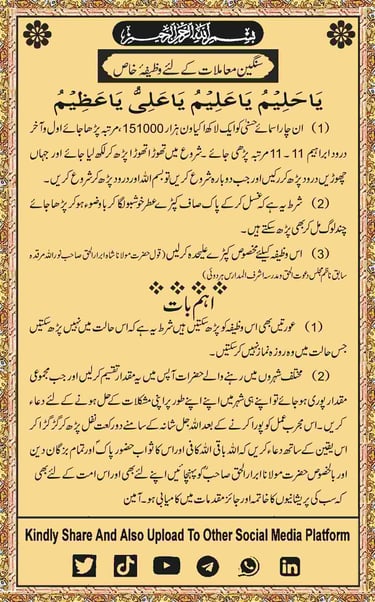 بسم اللہ الرحمن الرحیم
سنگین معاملات کے لئے وظیفۂ خاص
یَا حَلِیْمُ یَا عَلِیْمُ یَا عَلِیُّ یَا عَظِیْمُ
(1) ان چار اسمائے حسنیٰ کو ایک لاکھ اکیاون ہزار 151000، مرتبہ پڑھا جائے اول و آخر
درود ابراہیم 11 - 11 مرتبہ پڑھی جائے۔ شروع میں تھوڑا تھوڑا پڑھ کر لکھ لیا جائے اور جہاں
چھوڑیں درود پڑھ کر رکیں اور جب دوبارہ شروع کریں تو بسم اللہ اور درود پڑھ کر شروع کریں۔
(2) شرط یہ ہے کہ غسل کر کے پاک صاف کپڑے عطر خوشبو لگا کر باوضوء ہو کر پڑھا جائے
چند لوگ مل کر بھی پڑھ سکتے ہیں۔
(3) اس وظیفہ کیلئے مخصوص کپڑے علیحدہ کر لیں (قول حضرت مولانا شاہ ابرار الحق صاحب نور اللہ مرقدہ
سابق ناظم مجلس دعوت الحق و مدرسہ اشرف المدارس ہردوئی)
اہم بات
(1) عورتیں بھی اس وظیفہ کو پڑھ سکتیں ہیں شرط یہ ہے کہ اس حالت میں نہیں پڑھ سکتیں
جس حالت میں وہ روزہ نماز نہیں کر سکتیں۔
(2) مختلف شہروں میں رہنے والے حضرات آپس میں یہ مقدار تقسیم کر لیں اور جب مجموعی
مقدار پوری ہو جائے تو اپنے ہی شہر میں اپنے اپنے طور پر اپنی مشکلات کے حل ہونے کے لئے دعاء
کریں۔ اس مجرب عمل کو پورا کرنے کے بعد اللہ جل شانہ کے سامنے دو رکعت نفل پڑھ کر گڑگڑا کر
اس یقین کے ساتھ دعاء کریں کہ اللہ باقی اللہ کافی اور اس کا ثواب حضور پاک ﷺ اور تمام بزرگان دین
اور بالخصوص حضرت مولانا ابرار الحق صاحبؒ کو پہنچائیں اپنے لئے بھی اور اس امت کے لئے بھی
کہ سب کی پریشانیوں کا خاتمہ اور جائز مقدمات میں کامیابی ہو۔ آمین
Kindly Share And Also Upload To Other Social Media Platform